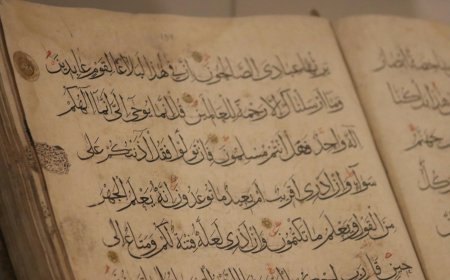 يرثها عبادي الصالحون إن في هذا لبلاغا لقوم عابدين
وما أرسلناك إلا رحمة للعالمين قل إنما يوحى إلي أنما إلهكم
إله واحد فهل أنتم مسلمون فإن تولوا فقل آذنتكم على
سواء وإن أدري أقريب أم بعيد ما توعدون إنه يعلم الجهر
من القول ويعلم ما تكتمون وإن أدري لعله فتنة لكم ومتاع إلى
حين قال رب
جهنم
وكل